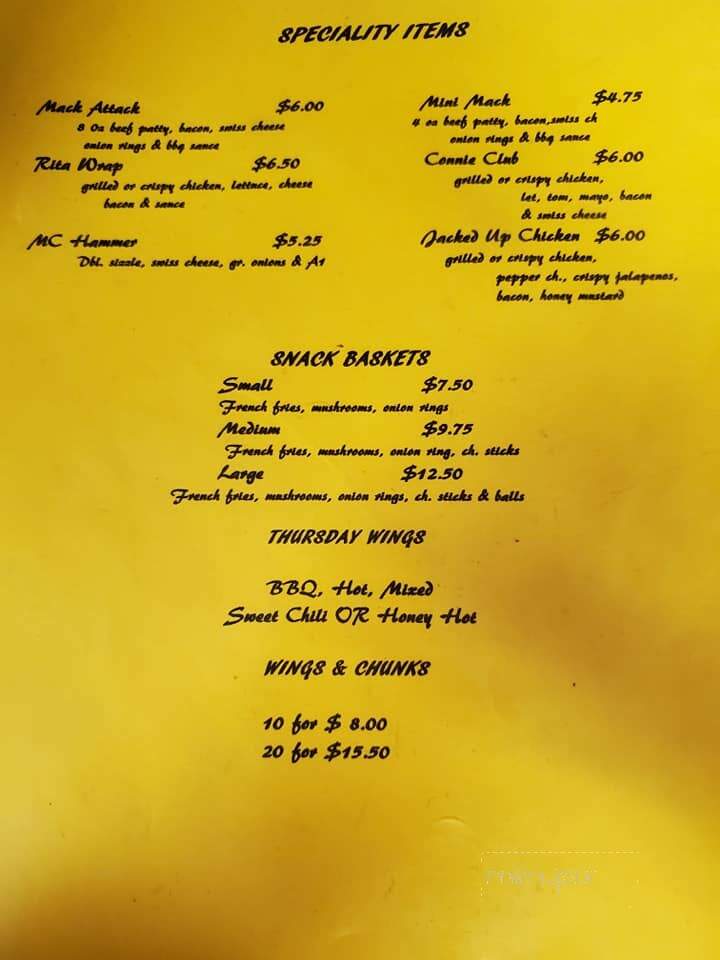 SPECIALITY ITEMS
Mack Attack $6.00
8 Oz beef patty, bacon, swiss cheese
onion rings & bbq sauce
Rita Wrap $6.50
grilled or crispy chicken, lettuce, cheese
bacon & sauce
MC Hammer $5.25
Dbl. sizzle, swiss cheese, gr. onions & A1
Mini Mack $4.75
4 oz beef patty, bacon,swiss ch
onion rings & bbq sauce
Connie Club $6.00
grilled or crispy chicken,
let, tom, mayo, bacon
& swiss cheese
Jacked Up Chicken $6.00
grilled or crispy chicken,
pepper ch., crispy jalapenos,
bacon, honey mustard
SNACK BASKETS
Small $7.50
French fries, mushrooms, onion rings
Medium $9.75
French fries, mushrooms, onion ring, ch. sticks
Large $12.50
French fries, mushrooms, onion rings, ch. sticks & balls
THURSDAY WINGS
BBQ, Hot, Mixed
Sweet Chili OR Honey Hot
WINGS & CHUNKS
10 for $ 8.00
20 for $15.50